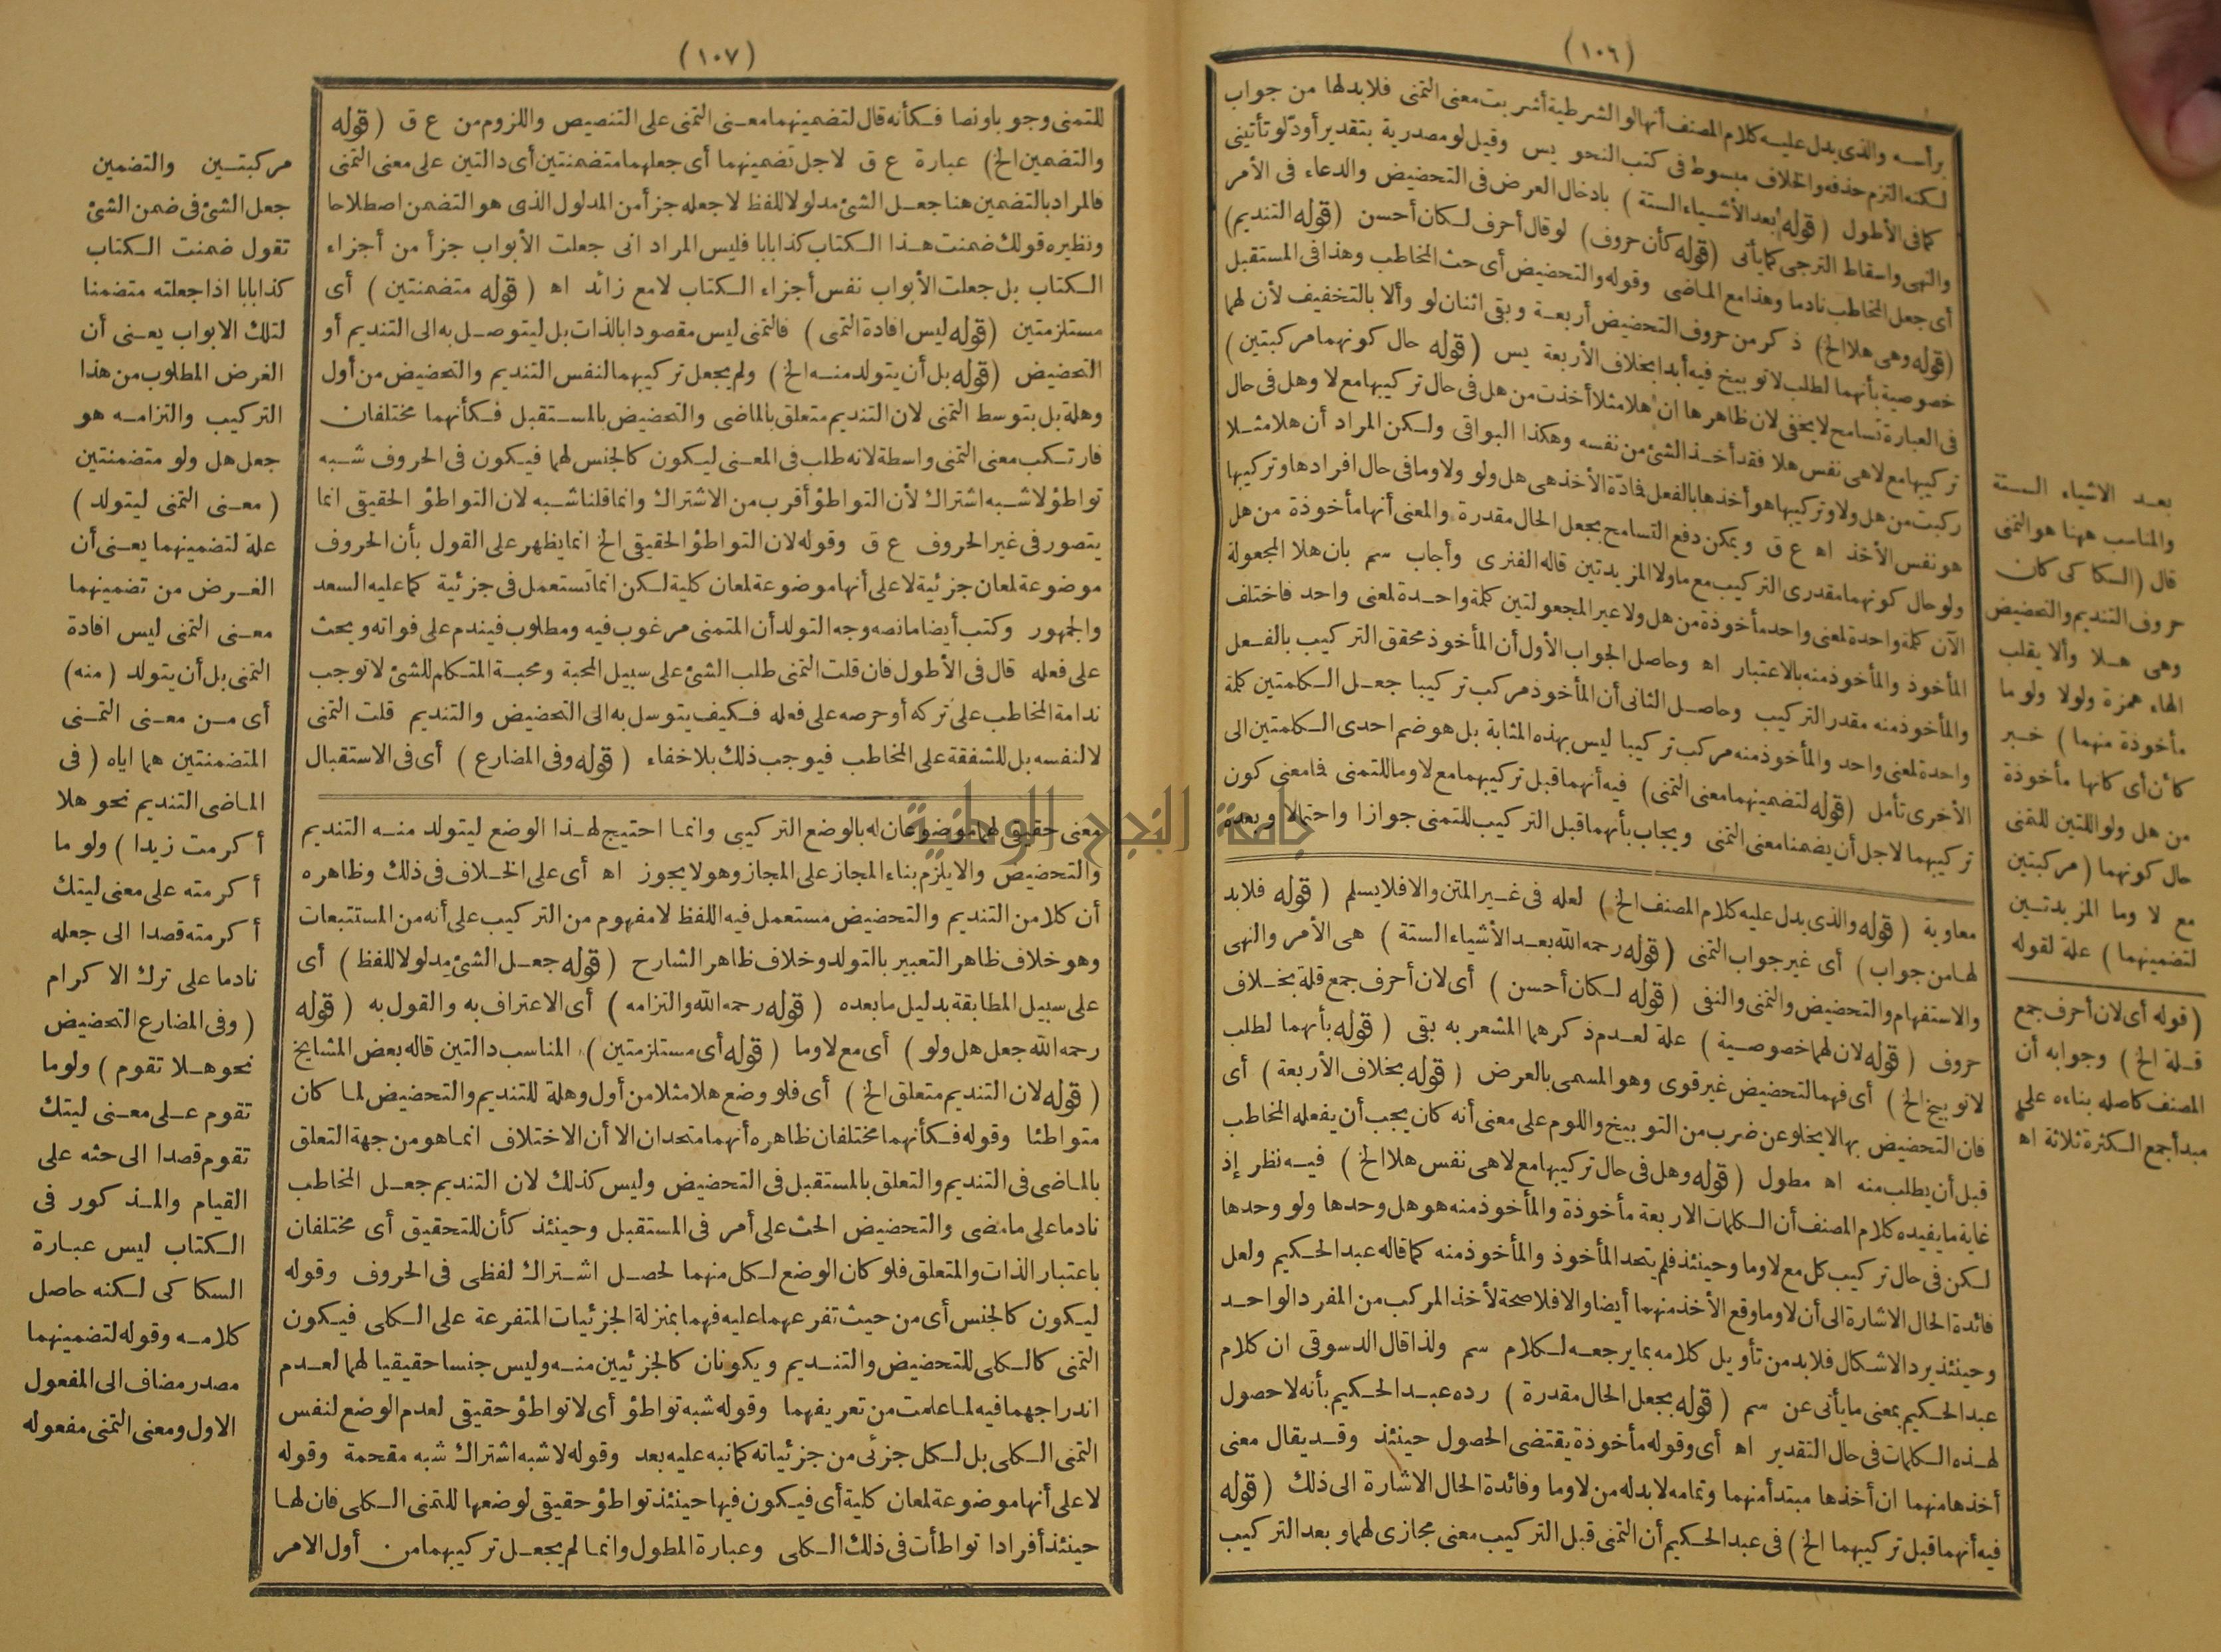 (١٠٦)
برأسه والذى يدل عليه كلام المصنف أنها لو الشرطية أشربت معنى التمنى فلا بد لها من جواب
لكنه التزم حذفه والخلاف مبسوط فى كتب النحو يس وقيل لو مصدرية بتقدير أود لو تأتينى
كما فى الأطول (قوله بعد الأشياء الستة) بادخال العرض فى التحضيض والدعاء فى الأمر
والنهى واسقاط الترجى كما يأتى (قوله كأن حروف) لو قال أحرف لكان أحسن (قوله التنديم)
أى جعل المخاطب نادما وهذا مع الماضى وقوله والتحضيض أى حث المخاطب وهذا فى المستقبل
(قوله وهى هلا الخ) ذكر من حروف التحضيض أربعة وبقى اثنان لو وألا بالتخفيف لأن لهما
خصوصية بأنهما لطلب لا توبيخ فيه أبدا بخلاف الأربعة يس (قوله حال كونهما مركبتين)
فى العبارة تسامح لا يخفى لان ظاهرها ان هلا مثلا أخذت من هل فى حال تركيبها مع لا وهل فى حال
تركيبها مع لا هى نفس هلا فقد أخذ الشئ من نفسه وهكذا البواقى ولكن المراد أن هلا مثلا
ركبت من هل ولا وتركيبها هو أخذها بالفعل فمادّة الأخذ هى هل ولو ولا وما فى حال افرادها وتركيبها
هو نفس الأخذ اه ع ق ويمكن دفع التسامح بجعل الحال مقدرة والمعنى أنها مأخوذة من هل
ولو حال كونهما مقدرى التركيب مع ما ولا المزيدتين قاله الفنرى وأجاب سم بان هلا المجعولة
الآن كلمة واحدة لمعنى واحد مأخوذة من هل ولا غير المجعولتين كلمة واحدة لمعنى واحد فاختلف
المأخوذ والمأخوذ منه بالاعتبار اه وحاصل الجواب الأول أن المأخوذ محقق التركيب بالفعل
والمأخوذ منه مقدر التركيب وحاصل الثانى أن المأخوذ مركب تركيبا جعل الكلمتين كلمة
واحدة لمعنى واحد والمأخوذ منه مركب تركيبا ليس بهذه المثابة بل هو ضم احدى الكلمتين الى
الأخرى تأمل (قوله لتضمينهما معنى التمنى) فيه أنهما قبل تركيبهما مع لا وما للتمنى فما معنى كون
تركيبهما لاجل أن يضمنا معنى التمنى ويجاب بأنهما قبل التركيب للتمنى جوازا واحتمالا وبعده
معاوية (قوله والذى يدل عليه كلام المصنف الخ) لعله فى غير المتن والا فلا يسلم (قوله فلا بد
لها من جواب) أى غير جواب التمنى (قوله رحمه الله بعد الأشياء الستة) هى الأمر والنهى
والاستفهام والتحضيض والتمنى والنفى (قوله لكان أحسن) أى لان أحرف جمع قلة بخلاف
حروف (قوله لان لهما خصوصية) علة لعدم ذكرهما المشعر به بقى (قوله بأنهما لطلب
لا توبيخ الخ) أى فهما لتحضيض غير قوى وهو المسمى بالعرض (قوله بخلاف الأربعة) أى
فان التحضيض بها لا يخلو عن ضرب من التوبيخ واللوم على معنى أنه كان يجب أن يفعله المخاطب
قبل أن يطلب منه اه مطول (قوله وهل فى حال تركيبها مع لا هى نفس هلا الخ) فيه نظر إذ
غاية ما يفيده كلام المصنف أن الكلمات الاربعة مأخوذة والمأخوذ منه هو هل وحدها ولو وحدها
لكن فى حال تركيب كل مع لا وما وحينئذ فلم يتحد المأخوذ والمأخوذ منه كما قاله عبد الحكيم ولعل
فائدة الحال الاشارة الى أن لا وما وقع الأخذ منهما أيضا والا فلا صحة لأخذ المركب من المفرد الواحد
وحينئذ يرد الاشكال فلا بد من تأويل كلامه بما يرجعه لكلام سم ولذا قال الدسوقى ان كلام
عبد الحكيم بمعنى ما يأتى عن سم (قوله بجعل الحال مقدرة) رده عبد الحكيم بأنه لا حصول
لهذه الكلمات فى حال التقدير اه أى وقوله مأخوذة يقتضى الحصول حينئذ وقد يقال معنى
أخذها منهما ان أخذها مبتدأ منهما وتمامه لا بد له من لا وما وفائدة الحال الاشارة الى ذلك (قوله
فيه أنهما قبل تركيبهما الخ) فى عبد الحكيم أن التمنى قبل التركيب معنى مجازى لهما وبعد التركيب
بعد الاشياء الستة
والمناسب ههنا هو التمنى
قال (السكاكى كان
حروف التنديم والتحضيض
وهى هلا وألا يقلب
الهاء همزة ولولا ولوما
مأخوذة منهما) خبر
كأن أى كانها مأخوذة
من هل ولو اللتين للتمنى
حال كونهما (مركبتين
مع لا وما المزيدتين
لتضمينهما) علة لقوله
(قوله أى لان أحرف جمع
قلة الخ) وجوابه أن
المصنف كاصله بناءه على
مبدأ جمع الكثرة ثلاثة اه
(١٠٧)
للتمنى وجوبا ونصا فكأنه قال لتضمينهما معنى التمنى على التنصيص واللزوم من ع ق (قوله
والتضمين الخ) عبارة ع ق لاجل تضمينهما أى جعلهما متضمنتين أى دالتين على معنى التمنى
فالمراد بالتضمين هنا جعل الشئ مدلولا للفظ لا جعله جزأ من المدلول الذى هو التضمن اصطلاحا
ونظيره قولك ضمنت هذا الكتاب كذا بابا فليس المراد انى جعلت الأبواب جزأ من أجزاء
الكتاب بل جعلت الأبواب نفس أجزاء الكتاب لا مع زائد اه (قوله متضمنتين) أى
مستلزمتين (قوله ليس افادة التمنى) فالتمنى ليس مقصودا بالذات بل ليتوصل به الى التنديم أو
التحضيض (قوله بل أن يتولد منه الخ) ولم يجعل تركيبهما لنفس التنديم والتحضيض من أول
وهلة بل بتوسط التمنى لان التنديم متعلق بالماضى والتحضيض بالمستقبل فكأنهما مختلفان
فارتكب معنى التمنى واسطة لانه طلب فى المعنى ليكون كالجنس لهما فيكون فى الحروف شبه
تواطؤ لا شبه اشتراك لأن التواطؤ أقرب من الاشتراك وانما قلنا شبه لان التواطؤ الحقيقى انما
يتصور فى غير الحروف ع ق وقوله لان التواطؤ الحقيقى الخ انما يظهر على القول بأن الحروف
موضوعة لمعان جزئية لا على أنها موضوعة لمعان كلية لكن انما تستعمل فى جزئية كما عليه السعد
والجمهور وكتب أيضا ما نصه وجه التولد أن المتمنى مرغوب فيه ومطلوب فيندم على فواته ويحث
على فعله قال فى الأطول فان قلت التمنى طلب الشئ على سبيل المحبة ومحبة المتكلم للشئ لا توجب
ندامة المخاطب على تركه أو حرصه على فعله فكيف يتوسل به الى التحضيض والتنديم قلت التمنى
لا لنفسه بل للشفقة على المخاطب فيوجب ذلك بلا خفاء (قوله وفى المضارع) أى فى الاستقبال
معنى حقيقى لهما موضوعان له بالوضع التركيبى وانما احتيج لهذا الوضع ليتولد منه التنديم
والتحضيض والا يلزم بناء المجاز على المجاز وهو لا يجوز اه أى على الخلاف فى ذلك وظاهره
أن كلا من التنديم والتحضيض مستعمل فيه اللفظ لا مفهوم من التركيب على أنه من المستتبعات
وهو خلاف ظاهر التعبير بالتولد وخلاف ظاهر الشارح (قوله جعل الشئ مدلولا للفظ) أى
على سبيل المطابقة بدليل ما بعده (قوله رحمه الله والتزامه) أى الاعتراف به والقول به (قوله
رحمه الله جعل هل ولو) أى مع لا وما (قوله أى مستلزمتين) المناسب دالتين قاله بعض المشايخ
(قوله لان التنديم متعلق الخ) أى فلو وضع هلا مثلا من أول وهلة للتنديم والتحضيض لما كان
متواطئا وقوله فكأنهما مختلفان ظاهره أنهما متحدان الا أن الاختلاف انما هو من جهة التعلق
بالماضى فى التنديم والتعلق بالمستقبل فى التحضيض وليس كذلك لان التنديم جعل المخاطب
نادما على ما مضى والتحضيض الحث على أمر فى المستقبل وحينئذ كأن للتحقيق أى مختلفان
باعتبار الذات والمتعلق فلو كان الوضع لكل منهما لحصل اشتراك لفظى فى الحروف وقوله
ليكون كالجنس أى من حيث تفرعهما عليه فهما بمنزلة الجزئيات المتفرعة على الكلى فيكون
التمنى كالكلى للتحضيض والتنديم ويكونان كالجزئيين منه وليس جنسا حقيقيا لهما لعدم
اندراجهما فيه لما علمت من تعريفهما وقوله شبه تواطؤ أى لا تواطؤ حقيقى لعدم الوضع لنفس
التمنى الكلى بل لكل جزئى من جزئياته كما نبه عليه بعد وقوله لا شبه اشتراك شبه مقحمة وقوله
لا على أنها موضوعة لمعان كلية أى فيكون فيها حينئذ تواطؤ حقيقى لوضعها للتمنى الكلى فان لها
حينئذ أفرادا تواطأت فى ذلك الكلى وعبارة المطول وانما لم يجعل تركيبهما من أول الامر
مركبتين والتضمين
جعل الشئ فى ضمن الشئ
تقول ضمنت الكتاب
كذا بابا اذا جعلته متضمنا
لتلك الابواب يعنى أن
الغرض المطلوب من هذا
التركيب والتزامه هو
جعل هل ولو متضمنتين
(معنى التمنى ليتولد)
علة لتضمينهما يعنى أن
الغرض من تضمينهما
معنى التمنى ليس افادة
التمنى بل أن يتولد (منه)
أى من معنى التمنى
المتضمنتين هما اياه (فى
الماضى التنديم نحو هلا
أكرمت زيدا) ولو ما
أكرمته على معنى ليتك
أكرمته قصدا الى جعله
نادما على ترك الاكرام
(وفى المضارع التحضيض
نحو هلا تقوم) ولوما
تقوم على معنى ليتك
تقوم قصدا الى حثه على
القيام والمذكور فى
الكتاب ليس عبارة
السكاكى لكنه حاصل
كلامه وقوله لتضمينهما
مصدر مضاف الى المفعول
الاول ومعنى التمنى مفعوله
جامعة النجاح الوطنية